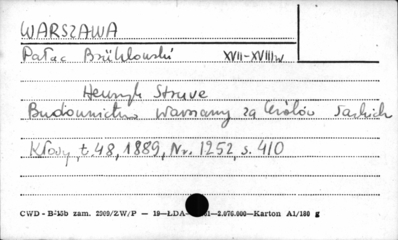 WARSZAWA
Pałac Brühlowski XVII-XVIII w
Henryk Struve
Budownictwo Warszawy za królów saskich
Kłosy, t. 48, 1889, Nr. 1252, s. 410
CWD - B-15b zam. 2909/ZW/P — 19—ŁDA- 61—2.070.000—Karton A1/180 g